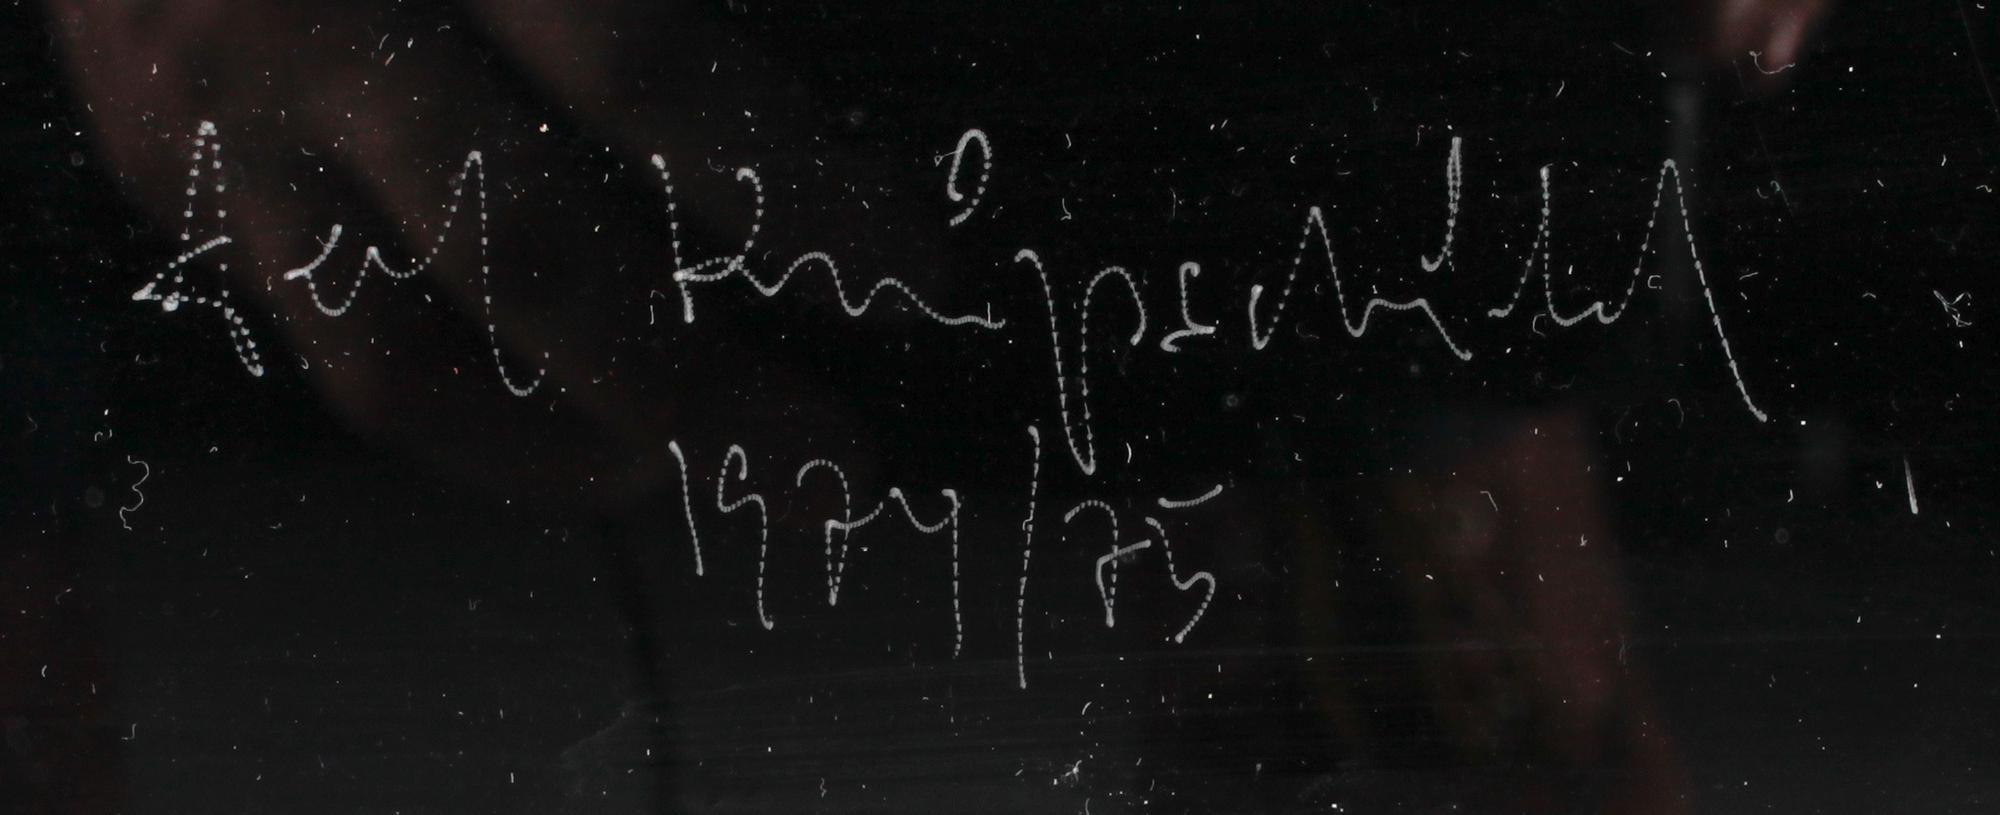 Axel Knipschild
1974/75